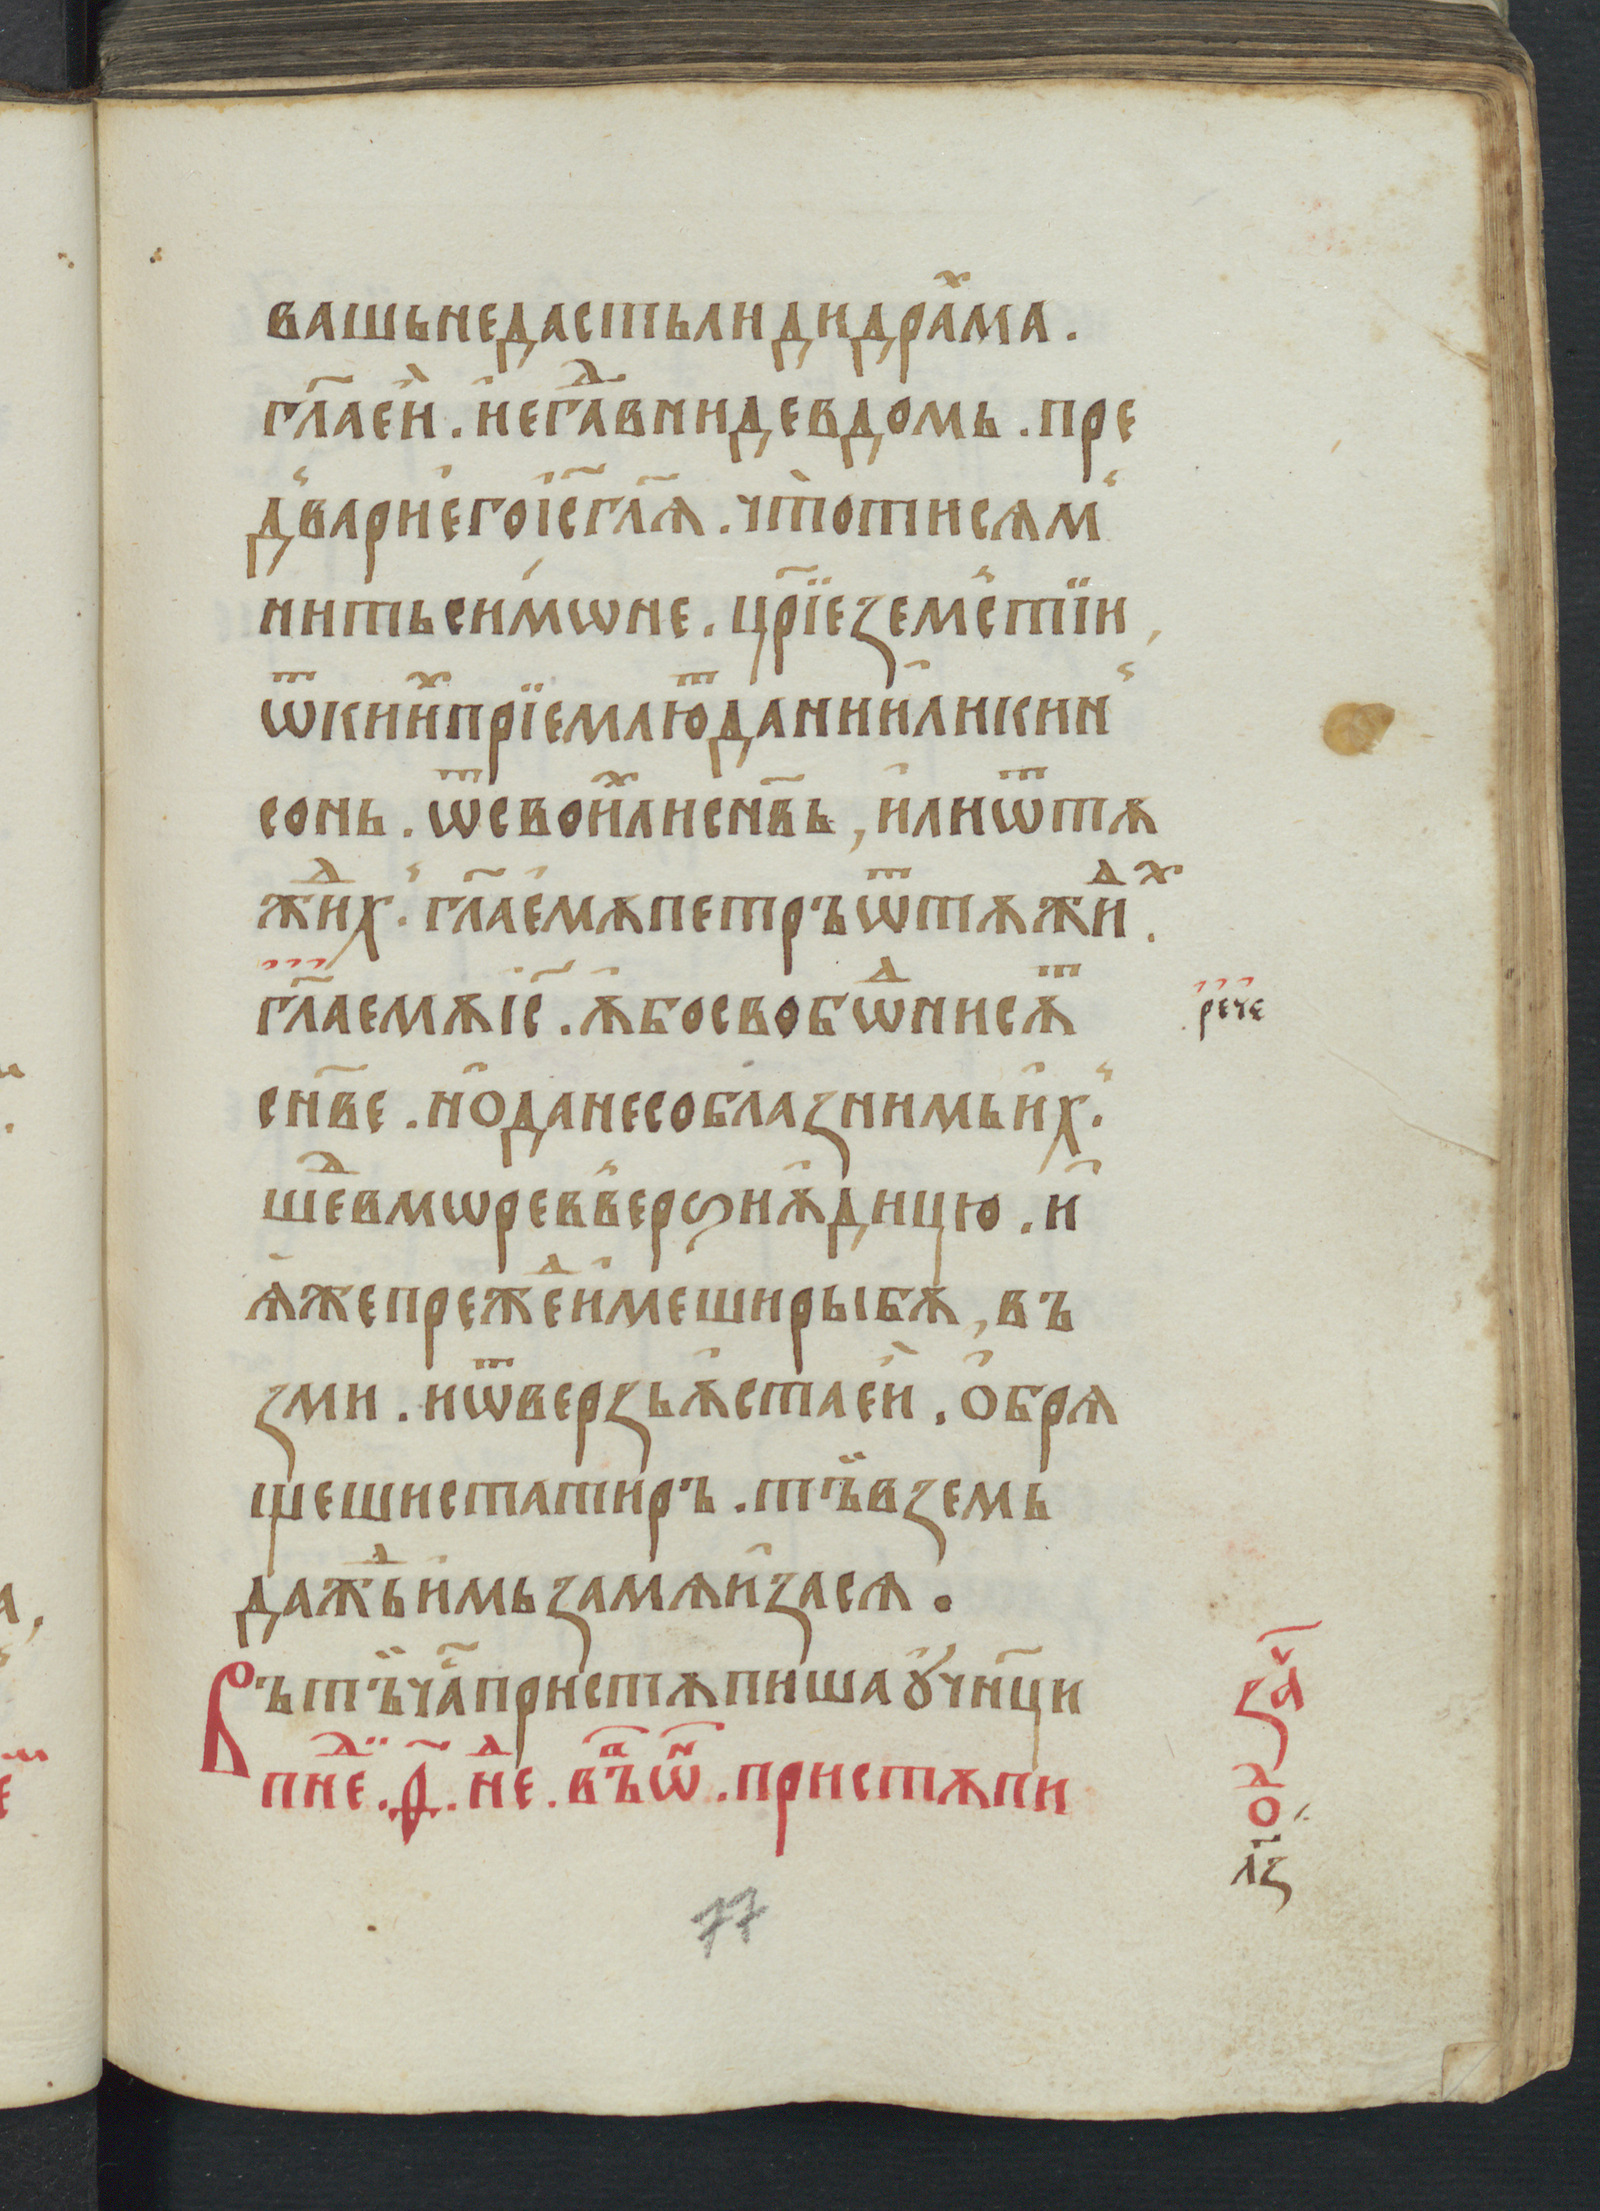 вашьнедастьлидидраⷯма .
гл҃аеи҆̀ . и҆егдⷣавнидевдомь . пре
д̾вариє҆гоі҆с҃гл҃ѧ . чт̀отисѧм̾
нитьсим́ѡне . цр҃їеꙁемс̑тїи ,
ѿкиⷯипрїемлюⷮданиилик̑ин̾
сонь . ѿсвоиⷯлисн҃вь , и҆лиѿтѫ
жⷣих̾ . гл҃ае҆мѫпетръѿтѫжⷣиⷯ .
гл҃аемѫі҆с҃ . ѫ҆босвобѡⷣнисѫⷮ
рече
сн҃ве . но҆данесоблаꙁнимьи҆х̾ .
шеⷣвморевв̑ерѕиѫ҆дицю . и҆
ѫ҆жепрежⷣеи҆меширыбѫ , въ
ꙁми . иѿверꙁьѫ҆стаеи҆̀ . о҆брѧ
щешистатиръ . тъ̏вꙁемь
дажⷣьи҆мьꙁамѧи҆ꙁасѧ .
Вътъ̏ча҃спристѫпишаꙋ҆чн҃ци
пнⷣе . д҃ . неⷣ . въⷫѡⷩ . пристѫпи
ꙁа҃ч
ѻ҃и
л҃ꙁ
77